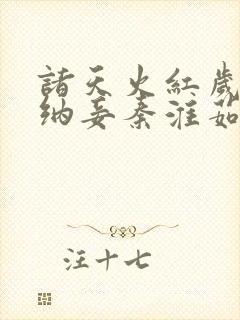 諸天火紅歲
納妾秦淮茹
汪十七